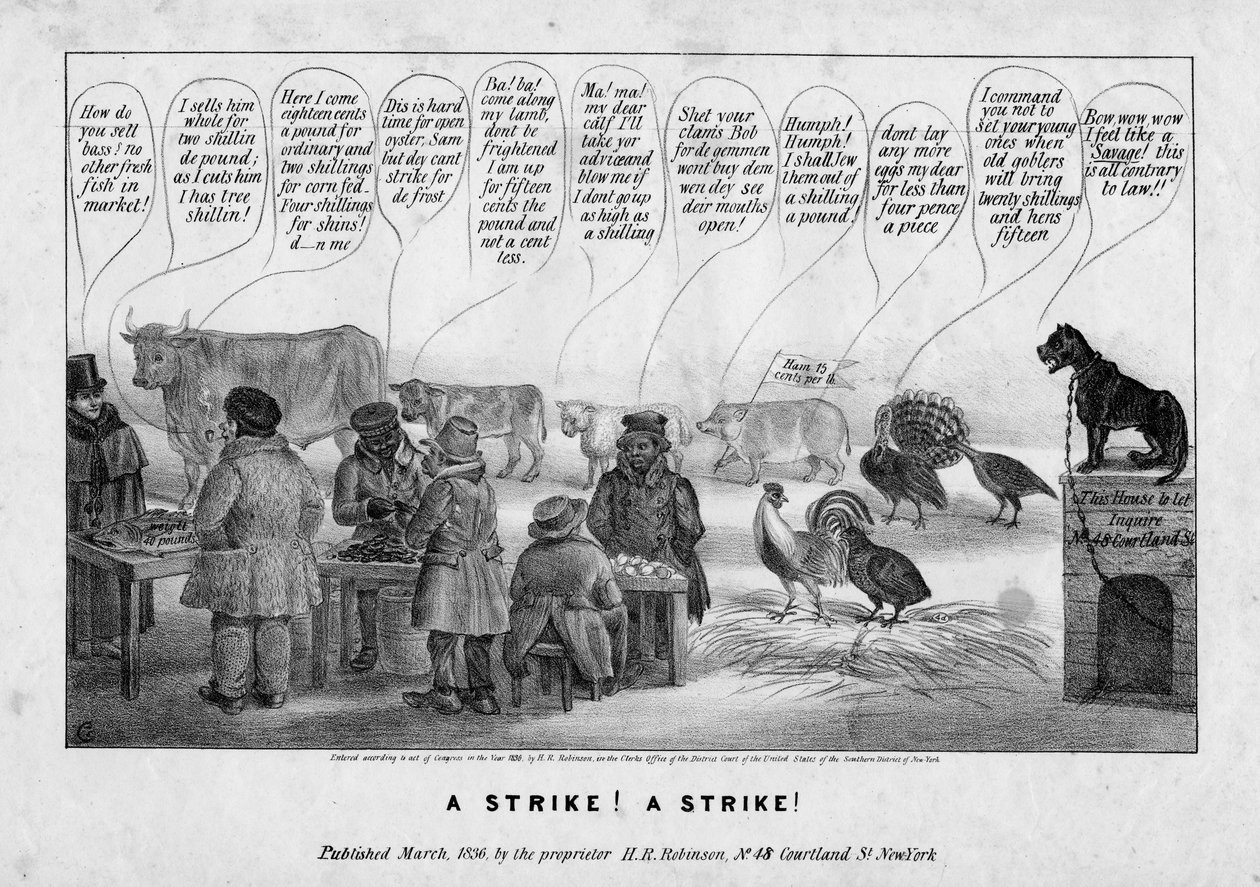 How do
you sell
bass & no
other fresh
fish in
market!
I sells him
whole for
two shillin
de pound;
as I cuts him
I has tree
shillin!
Here I come
eighteen cents
a pound for
ordinary and
two shillings
for corn fed_
Four shillings
for shins!
d—n me
Dis is hard
time for open
oyster, Sam
but dey cant
strike for
de frost
Ba! ba!
come along
my lamb,
dont be
frightened
I am up
for fifteen
cents the
pound and
not a cent
less.
Ma! ma!
my dear
calf I'll
take yor
advice and
blow me if
I dont go up
as high as
a shilling
Shet your
clams Bob
for de gemmen
wont buy dem
wen dey see
deir mouths
open!
Humph!
Humph!
I shall Jew
them out of
a shilling
a pound!
dont lay
any more
eggs my dear
for less than
four pence
a piece
I command
you not to
set your young
ones when
old goblers
will bring
twenty shillings
and hens
fifteen
Bow, wow, wow
I feel like a
Savage! this
is all contrary
to law!!
Ham 15
cents per lb.
weight
40 pounds
This House to let
Inquire
No 48 Courtland St
Entered according to act of Congress in the Year 1836, by H. R. Robinson, in the Clerks Office of the District Court of the United States of the Southern District of New York
A STRIKE! A STRIKE!
Published March, 1836, by the proprietor H. R. Robinson, No. 48 Courtland St. New-York